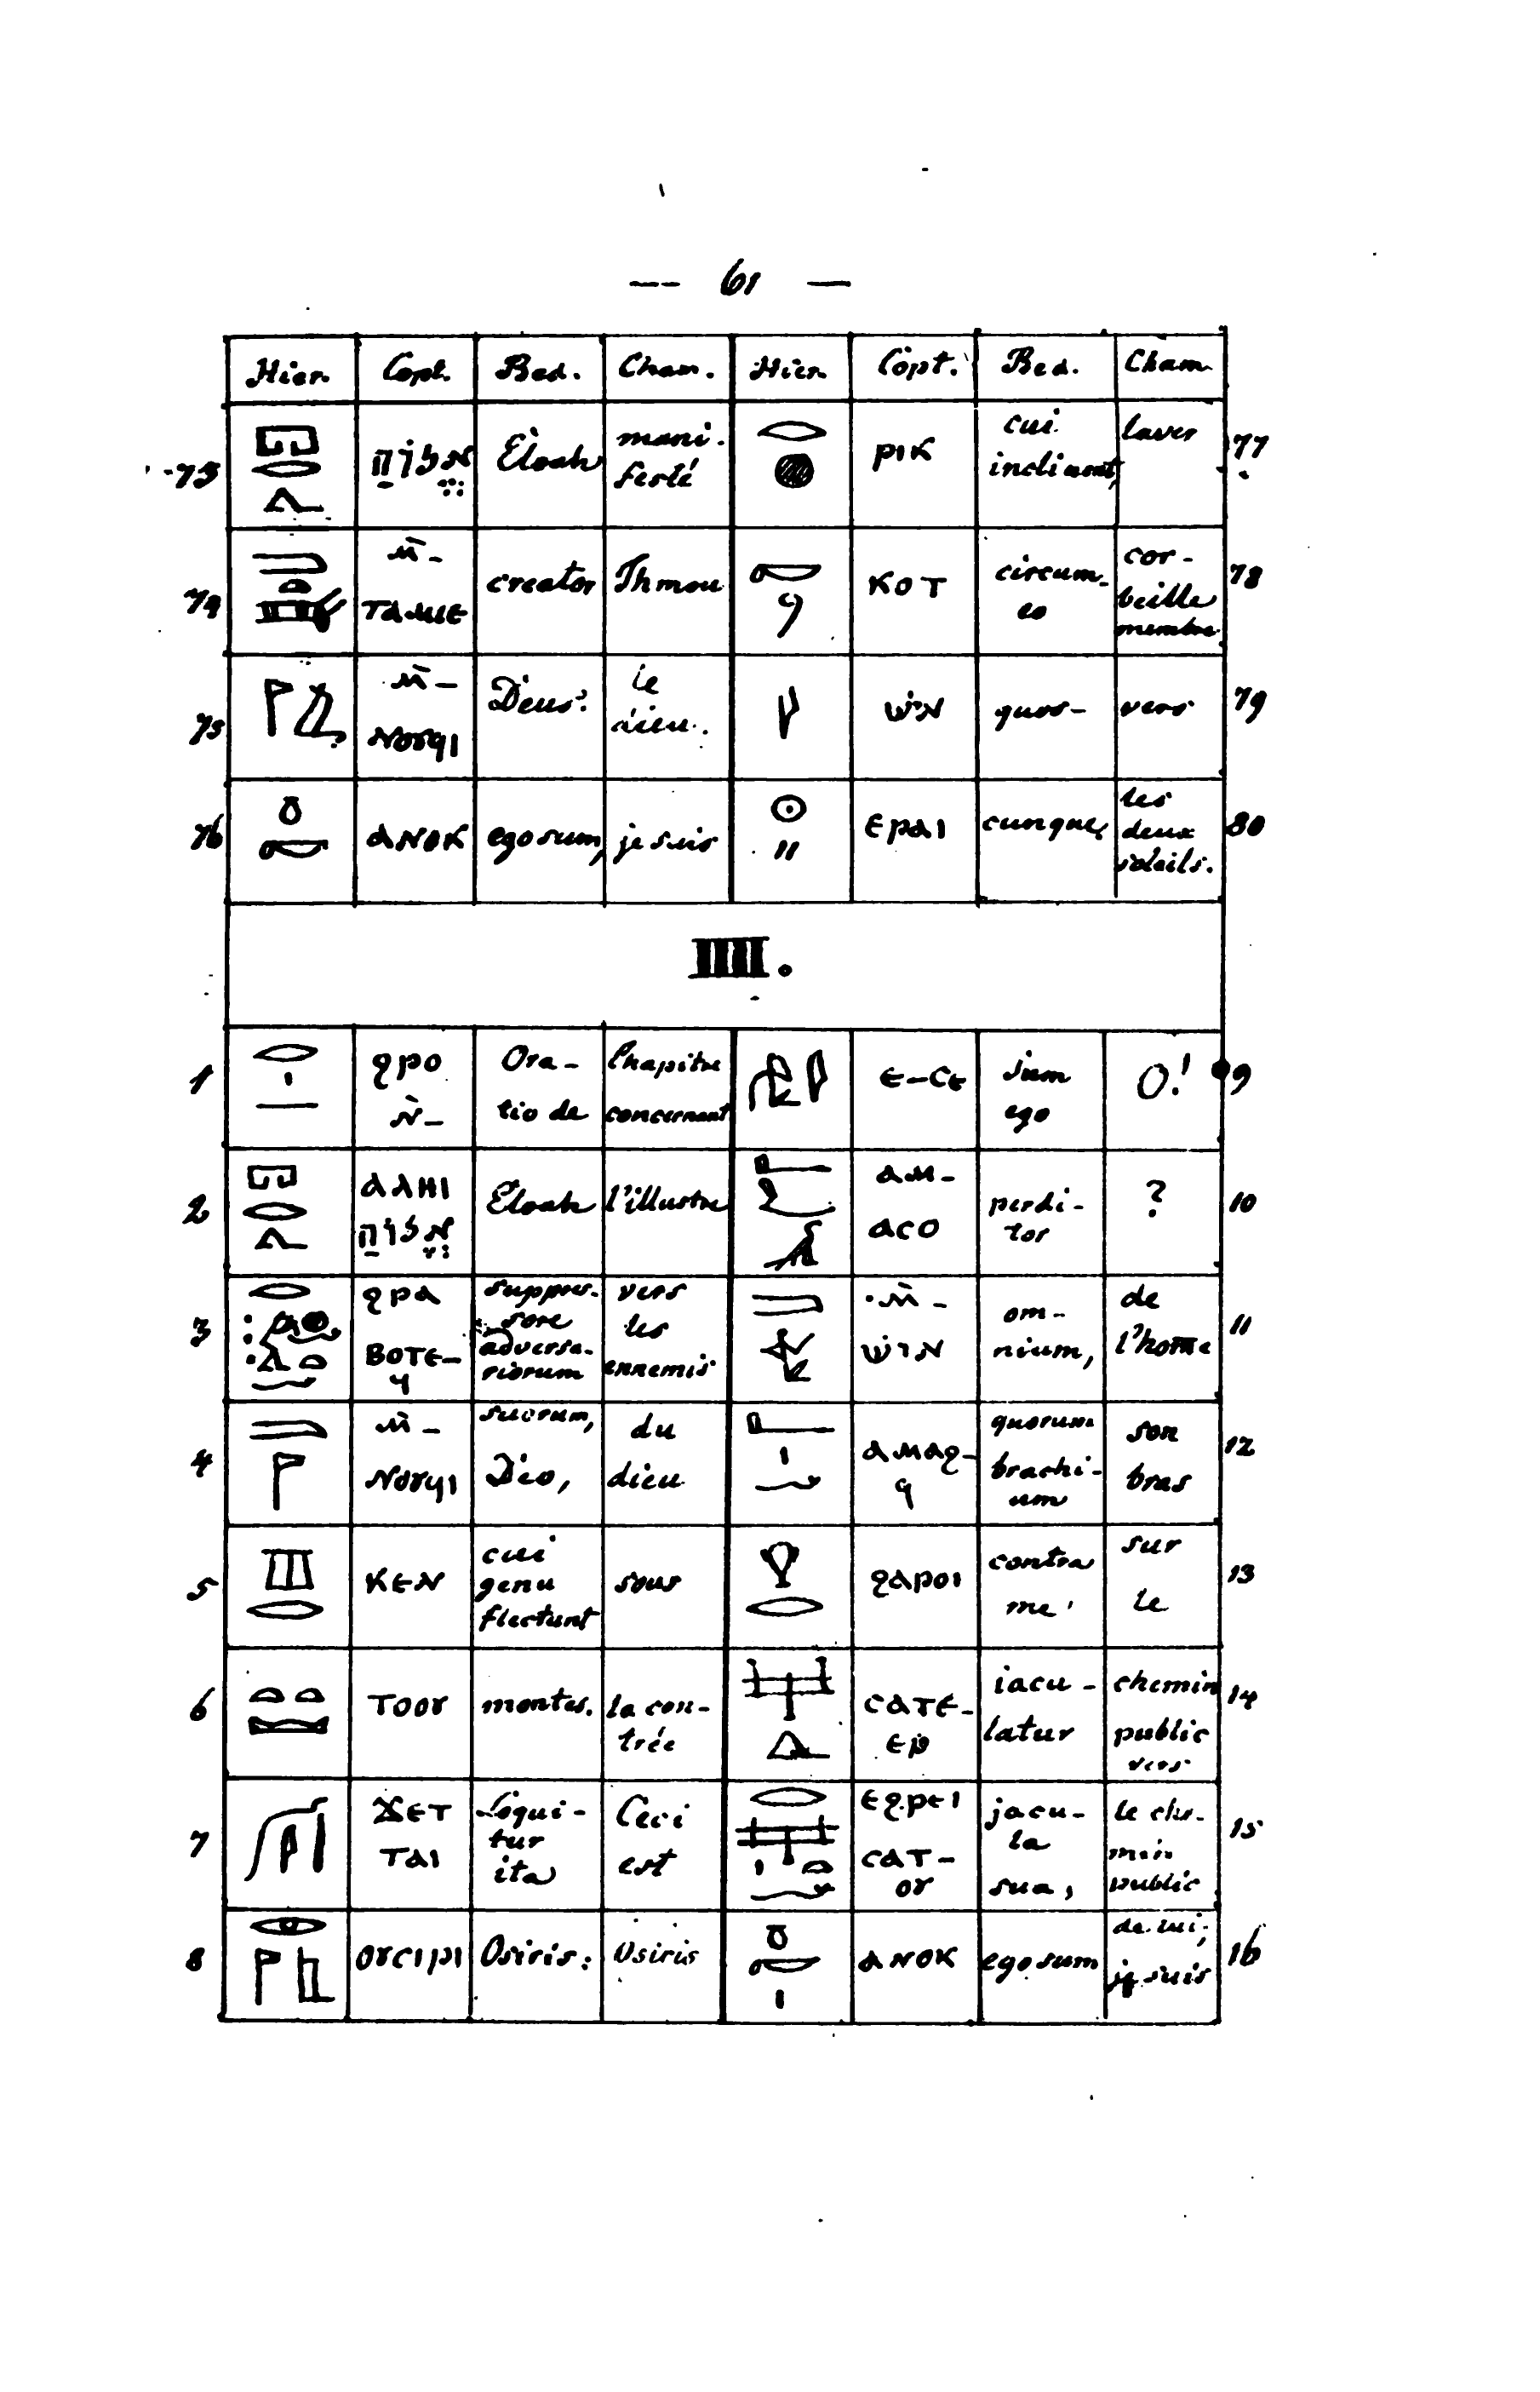 — 61 —
Hier. Copt. Bed. Cham. Hier. Copt. Bed. Cham.
73 𓉐𓂋𓂻 אֱלוֹהַּ Eloah mani- festé
𓂋𓐍 ⲣⲓⲕ cui inclinant, laver 77
74 ⲙ̀- ⲧⲁⲙⲓⲉ creator Thmou
ⲕⲟⲧ circum- eo cor- beille membre 78
75 ⲙ̀- ⲛⲟⲩϥⲓ Deus: le dieu.
איש quos- vers 79
76 𓏌𓎡 ⲁⲛⲟⲕ ego sum, je suis
𓇳 " ⲉⲣⲁⲓ cunque, les deux soleils. 80
IIII.
1 𓂋𓏤𓈖 ϩⲣⲟ ⲛ̀- Ora- tio de Chapitre concernant
ⲉ-ⲥⲉ sum ego O! 9
2 𓉐𓂋𓂻 ⲁⲗⲏⲓ אֱלוֹהַּ Eloah l'illustre
ⲁⲙ- ⲁⲥⲟ perdi- tor ? 10
3 ϩⲣⲁ ⲃⲟⲧⲉ- ϥ suppres- sore adversa- riorum vers les ennemis
ⲙ̀- איש om- nium, de l'home 11
4 𓅓𓊹 ⲙ̀- ⲛⲟⲩϥⲓ suorum, Deo, du dieu
𓂝𓏤𓆑 ⲁⲙⲁϩ- ϥ quorum brachi- um son bras 12
5 ⲕⲉⲛ cui genu flectunt sous
𓁷𓂋 ϩⲁⲣⲟⲓ contra me sur le 13
6 ⲧⲟⲟⲩ montes. la con- trée
ⲥⲁⲧⲉ- ⲉⲣ iacu- latur chemin public vers 14
7 ϫⲉⲧ ⲧⲁⲓ Loqui- tur ita Ceci est
ⲉϩⲣⲉⲓ ⲥⲁⲧ- ⲟⲩ jacu- la sua, le che- min public 15
8 ⲟⲩⲥⲓⲣⲓ Osiris: Osiris
𓏌𓎡𓏤 ⲁⲛⲟⲕ ego sum de lui; je suis 16